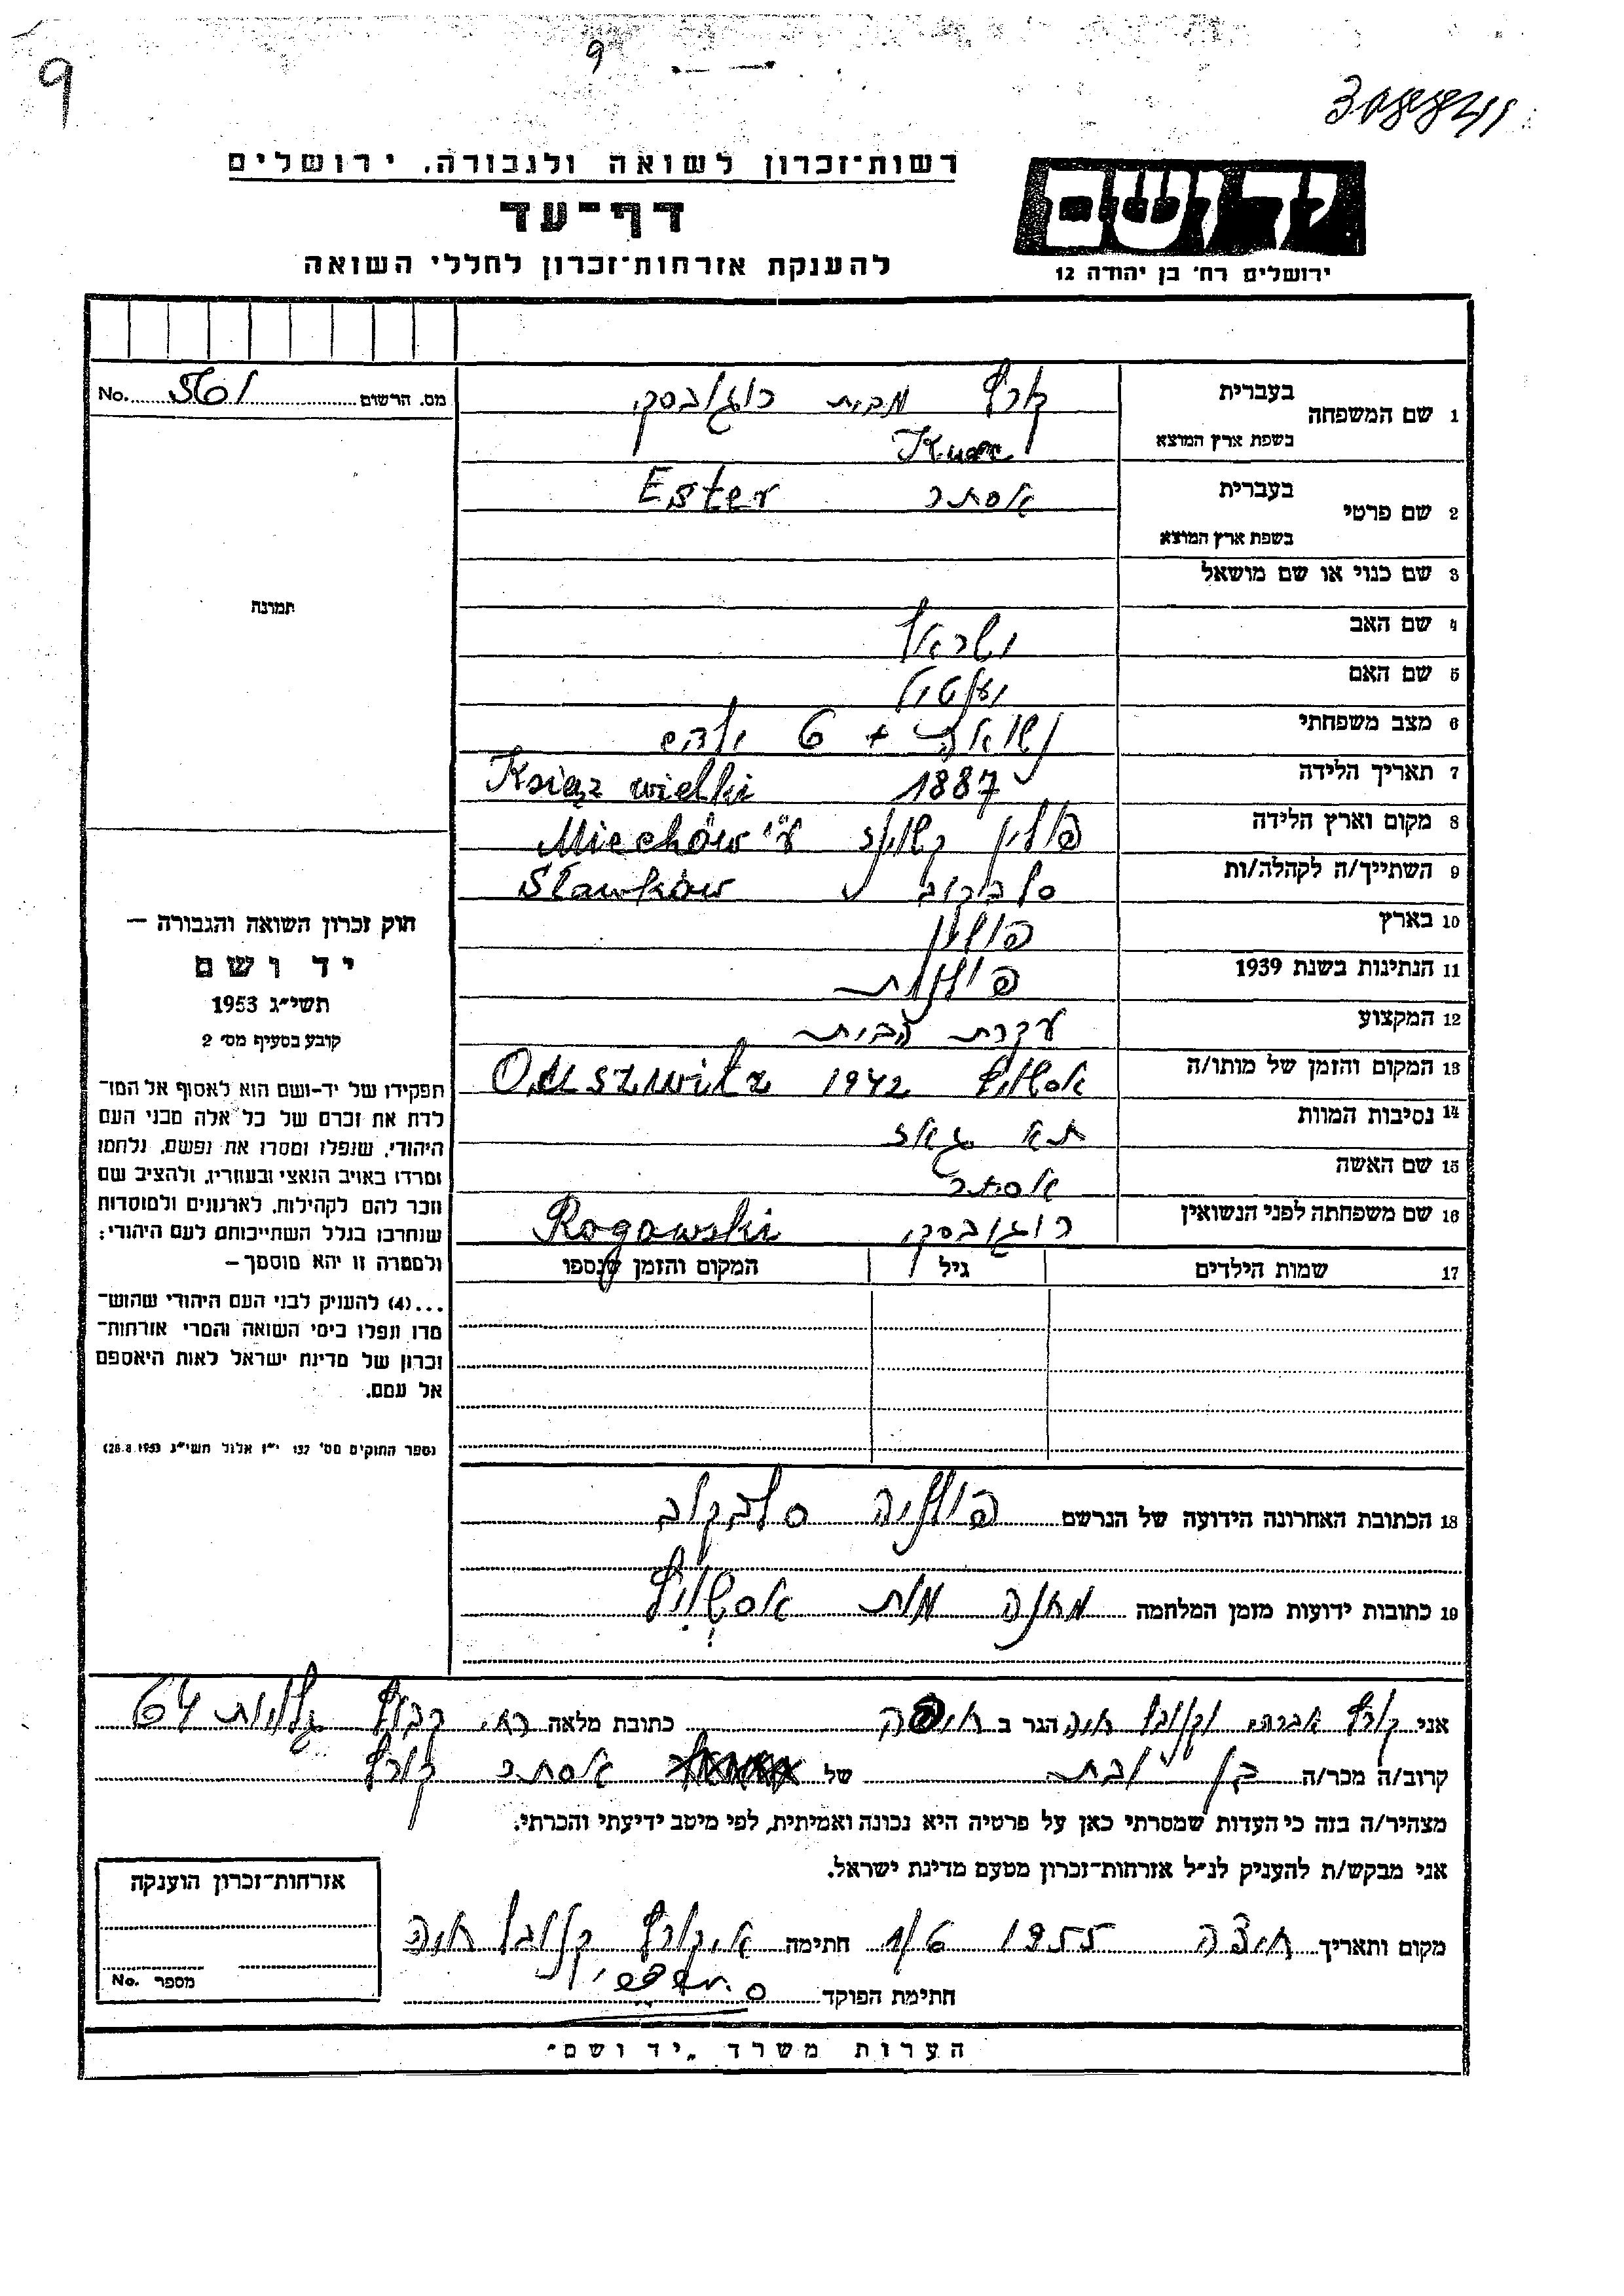 9
9
רשות־זכרון לשואה ולגבורה, ירושלים
דף־עד
להענקת אזרחות־זכרון לחללי השואה
יד ושם
ירושלים רח׳ בן יהודה 12
מס. הרשום No. 561
1 שם המשפחה בעברית קורץ מבית רוגובסקי
בשפת ארץ המוצא
2 שם פרטי בעברית אסתר Ester
בשפת ארץ המוצא
3 שם כנוי או שם מושאל
4 שם האב ישראל
5 שם האם
6 מצב משפחתי נשואה + 6 ילדים
7 תאריך הלידה 1887 Książ wielki
8 מקום וארץ הלידה פולין קשונז ע״י Miechów
9 השתייך/ה לקהלה/ות סלבקוב Sławków
10 בארץ פולין
11 הנתינות בשנת 1939 פולנית
12 המקצוע עקרת הבית
13 המקום והזמן של מותו/ה אושויץ 1942 Ouszwitz
14 נסיבות המוות תא גאז
15 שם האשה אסתר
16 שם משפחתה לפני הנשואין רוגובסקי Rogowski
17 שמות הילדים גיל המקום והזמן שנספו
18 הכתובת האחרונה הידועה של הנרשם פולניה סלבקוב
19 כתובות ידועות מזמן המלחמה מחנה מות אושויץ
תמונה
חוק זכרון השואה והגבורה —
יד ושם
תשי״ג 1953
קובע בסעיף מס׳ 2
תפקידו של יד־ושם הוא לאסוף אל המו־
לדת את זכרם של כל אלה מבני העם
היהודי, שנפלו ומסרו את נפשם, נלחמו
ומרדו באויב הנאצי ובעוזריו, ולהציב שם
וזכר להם לקהילות, לארגונים ולמוסדות
שנחרבו בגלל השתייכותם לעם היהודי;
ולמטרה זו יהא מוסמך —
...(4) להעניק לבני העם היהודי שהוש־
מדו ונפלו בימי השואה והמרי אזרחות־
זכרון של מדינת ישראל לאות היאספם
אל עמם.
(ספר החוקים מס׳ 132 י״ז אלול תשי״ג 28.8.1953)
אני קורץ אברהם וקלוגמן חיה הגר ב חיפה כתובת מלאה רח׳ קבוץ גלויות 64
קרוב/ה מכר/ה בן ובת של אסתר קורץ
מצהיר/ה בזה כי העדות שמסרתי כאן על פרטיה היא נכונה ואמיתית, לפי מיטב ידיעתי והכרתי.
אני מבקש/ת להעניק לנ״ל אזרחות־זכרון מטעם מדינת ישראל.
מקום ותאריך חיפה 1955 1/6 חתימה א. קורץ חיה
חתימת הפוקד
אזרחות־זכרון הוענקה
מספר No.
הערות משרד „יד ושם״